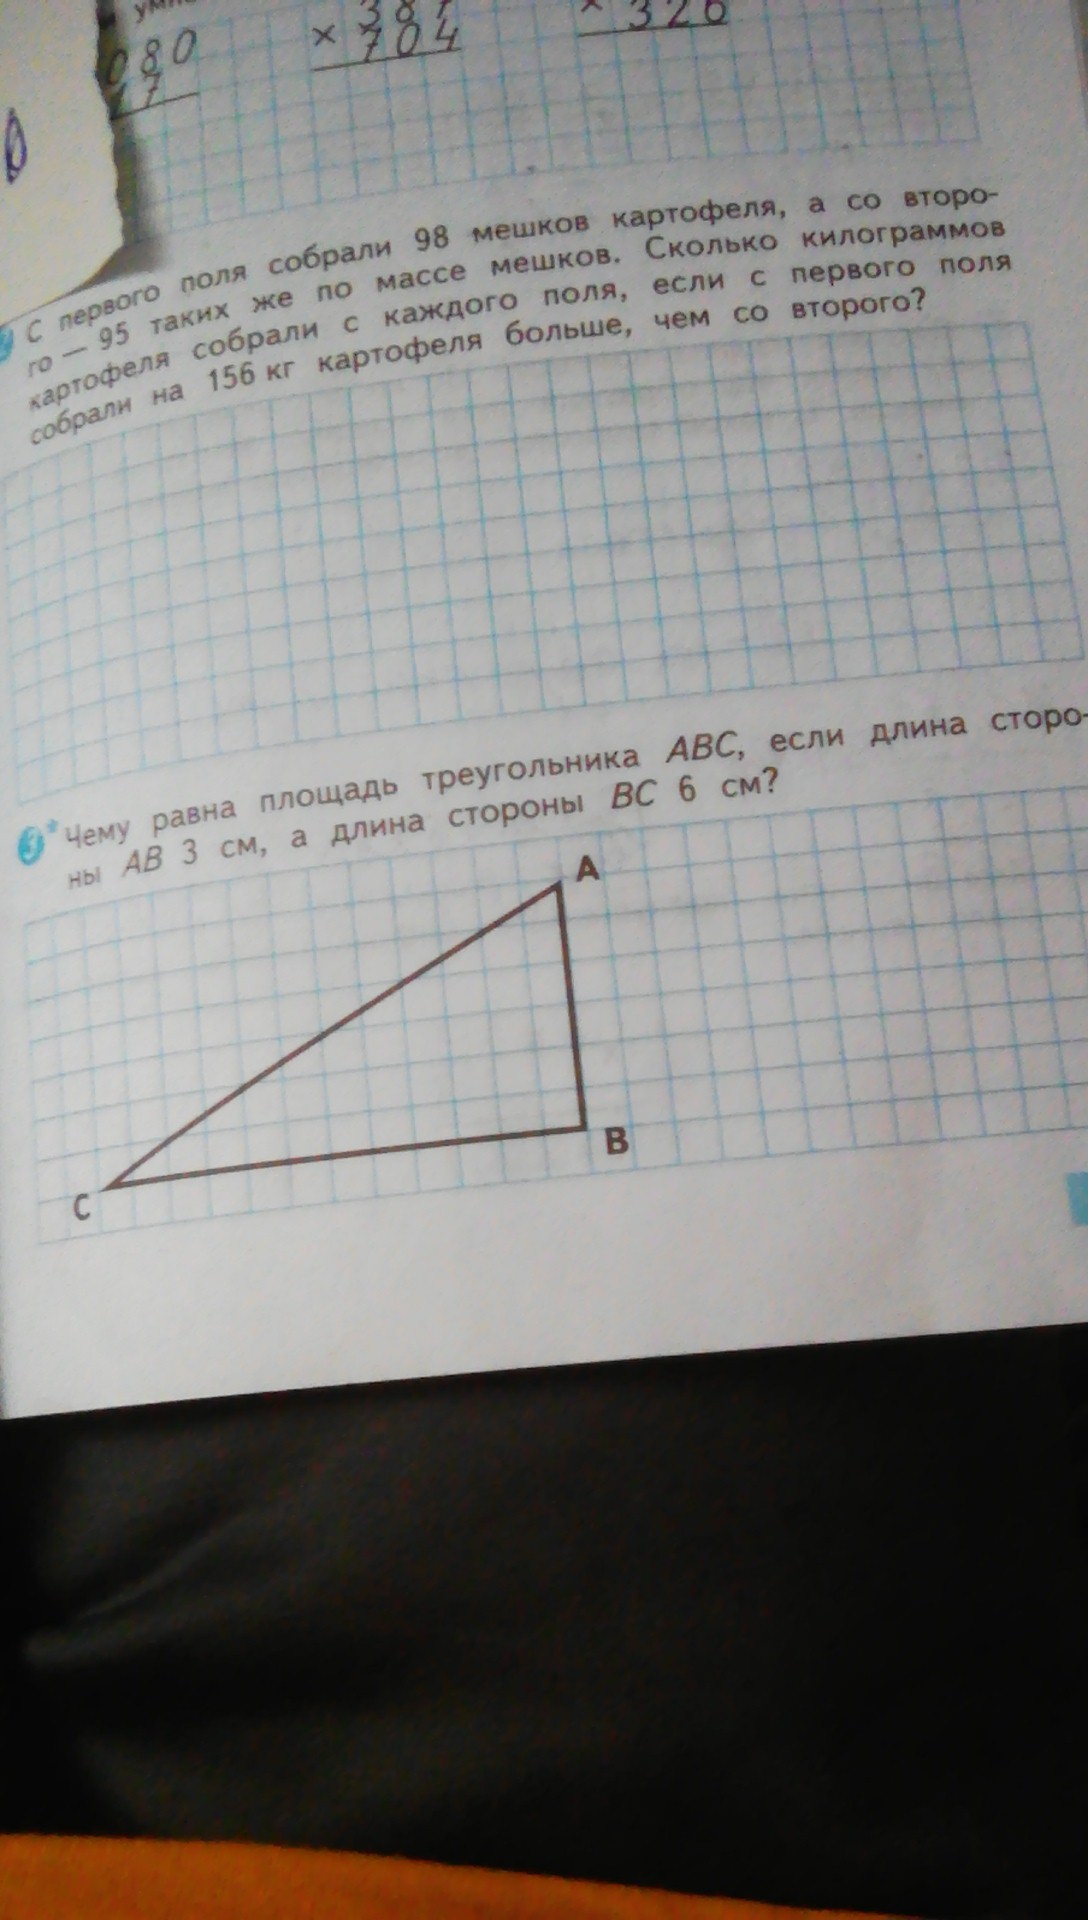 080
7
× 704
× 326
С первого поля собрали 98 мешков картофеля, а со второ-
го — 95 таких же по массе мешков. Сколько килограммов
картофеля собрали с каждого поля, если с первого поля
собрали на 156 кг картофеля больше, чем со второго?
3* Чему равна площадь треугольника ABC, если длина сторо-
ны AB 3 см, а длина стороны BC 6 см?
A
B
C